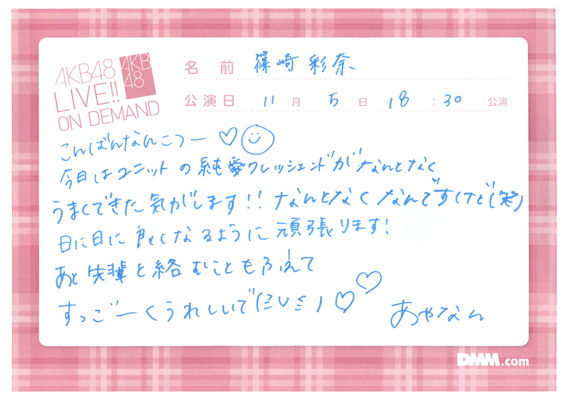 AKB48
LIVE!!
ON DEMAND
AKB
48
名前 篠崎彩奈
公演日 11月5日 18:30 公演
こんばんなんこつー♡
今日はユニットの純愛クレッシェンドがなんとなく
うまくできた気がします!!なんとなくなんですけど(笑)
日に日に良くなるように頑張ります!
あと先輩と絡むこともふえて
すっごーくうれしいで(ミ∪ミ)♡♡
あやなん
DMM.com